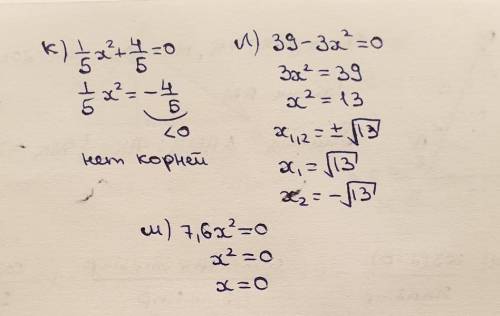 к) 1/5 x² + 4/5 = 0
1/5 x² = - 4/5
<0
нет корней
л) 39 - 3x² = 0
3x² = 39
x² = 13
x₁,₂ = ± √13
x₁ = √13
x₂ = - √13
м) 7,6x² = 0
x² = 0
x = 0